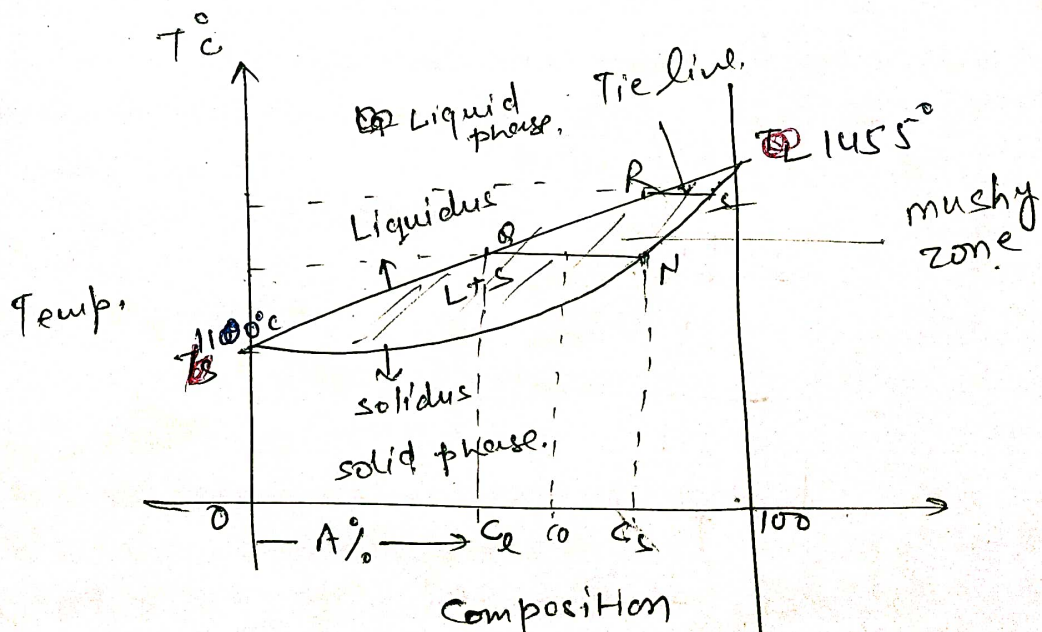 T°c
Liquid
phase.
Tie line.
1455°
R
S
Liquidus
mushy
zone
Q
L+S
N
Temp.
solidus
solid phase.
0
A%
Cl
Co
Cs
100
Composition